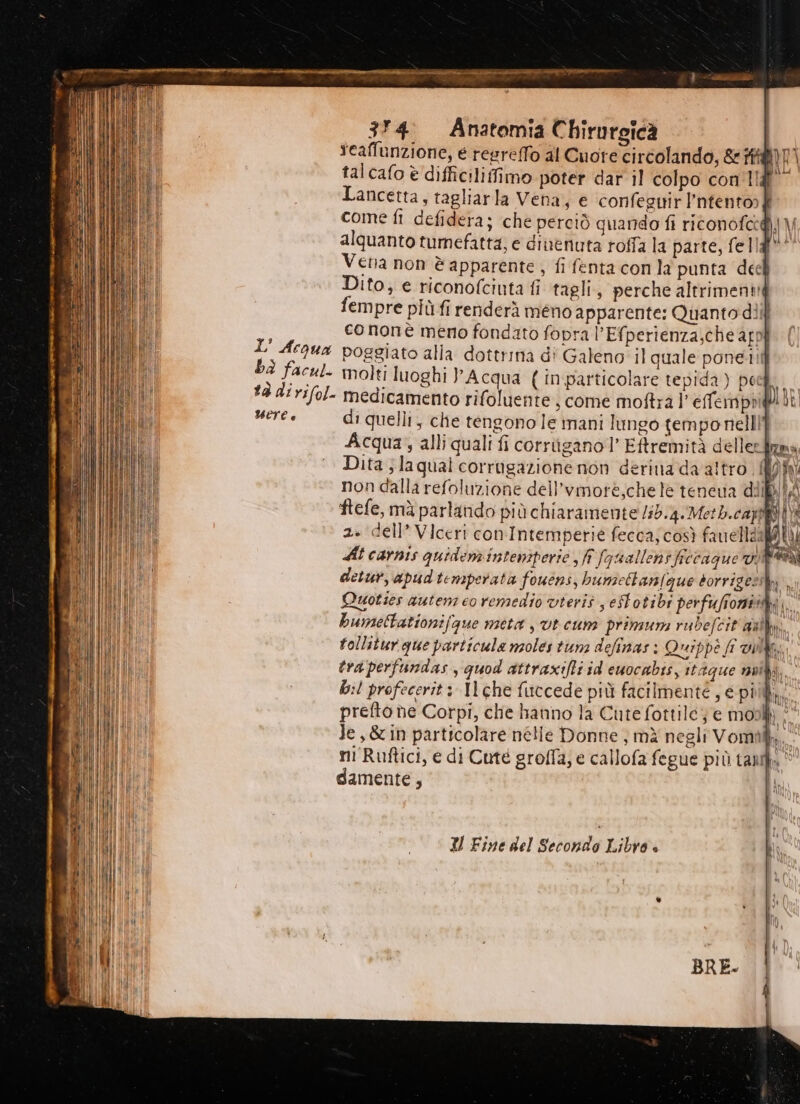 374 Anatomia Chirurgica
reaſſunzione, e regreſſo al Cuore circolando, &
tal caſo è difficiliſſimo poter dar il colpo con
Lancetta, tagliar la Vena, e conſeguir l'ntento;
come ſi deſidera; che perciò quando ſi riconoſce
alquanto tumefatta, e diuenuta roſſa la parte, ſe
Vena non è apparente, ſi ſenta con la punta
Dito, e riconoſciuta ſi tagli, perche altrimenti
ſempre più ſi renderà meno apparente: Quanto
co non è meno fondato ſopra l'Eſperienza, che
L' Acqua poggiato alla dottrina di Galeno il quale pone
hà facul- molti luoghi l'Acqua (in particolare tepida)
tà di riſol- medicamento riſoluente, come moſtra l'eſſempi
uere. di quelli, che tengono le mani lungo tempo
Acqua, alli quali ſi corrugano l'Eſtremità delle
Dita; la qual corrugazione non deriua da altro
non dalla reſoluzione dell'vmore, che le teneua
ſteſe, mà parlando più chiaramente lib.4. Meth.
2. dell'Vlceri con Intemperie ſecca, così fauella
At carnis quidem intemperie, ſi ſquallens ſiccaque
detur, apud temperata fouens, humectanſque corriges
Quoties autem eo remedio vteris, eſt otibi perfuſionis
humectationiſque meta, vt cum primum rubeſcit
tollitur que particula moles tum deſinas: Quippè ſi
tra perfundas, quod attraxiſti id euocabis, itaque
hil profecerit: Il che ſuccede più facilmente, e
preſto ne Corpi, che hanno la Cute ſottile; e
le, & in particolare nelle Donne; mà negli
ni Ruſtici, e di Cute groſſa, e calloſa ſegue più
damente,
Il Fine del Secondo Libro.
BRE-